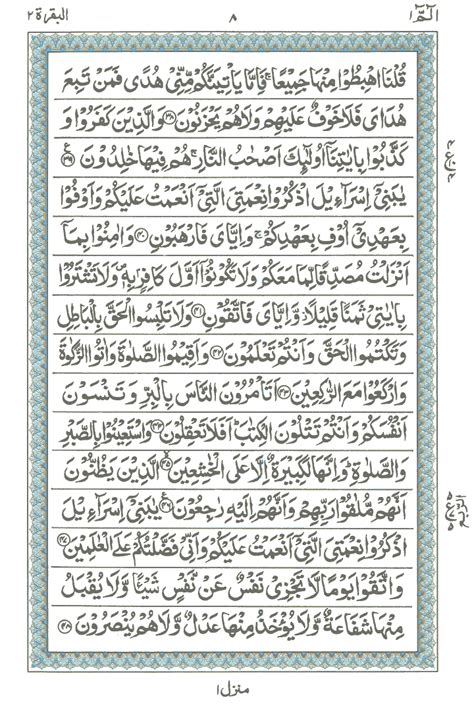 الٓمّٓ ١ ٨ البقرة ٢
قُلْنَا اهْبِطُوْا مِنْهَا جَمِيْعًا ۚ فَاِمَّا يَاْتِيَنَّكُمْ مِّنِّيْ هُدًى فَمَنْ تَبِعَ
هُدَايَ فَلَا خَوْفٌ عَلَيْهِمْ وَلَا هُمْ يَحْزَنُوْنَ ۝٣٨ وَالَّذِيْنَ كَفَرُوْا وَ
كَذَّبُوْا بِاٰيٰتِنَاۤ اُولٰٓئِكَ اَصْحٰبُ النَّارِ ۚ هُمْ فِيْهَا خٰلِدُوْنَ ۝٣٩
يٰبَنِيْۤ اِسْرَآءِيْلَ اذْكُرُوْا نِعْمَتِيَ الَّتِيْۤ اَنْعَمْتُ عَلَيْكُمْ وَاَوْفُوْا
بِعَهْدِيْۤ اُوْفِ بِعَهْدِكُمْ ۚ وَاِيَّايَ فَارْهَبُوْنِ ۝٤٠ وَاٰمِنُوْا بِمَاۤ
اَنْزَلْتُ مُصَدِّقًا لِّمَا مَعَكُمْ وَلَا تَكُوْنُوْۤا اَوَّلَ كَافِرٍۭ بِهٖ ۪ وَلَا تَشْتَرُوْا
بِاٰيٰتِيْ ثَمَنًا قَلِيْلًا ؗ وَّاِيَّايَ فَاتَّقُوْنِ ۝٤١ وَلَا تَلْبِسُوا الْحَقَّ بِالْبَاطِلِ
وَتَكْتُمُوا الْحَقَّ وَاَنْتُمْ تَعْلَمُوْنَ ۝٤٢ وَاَقِيْمُوا الصَّلٰوةَ وَاٰتُوا الزَّكٰوةَ
وَارْكَعُوْا مَعَ الرّٰكِعِيْنَ ۝٤٣ اَتَاْمُرُوْنَ النَّاسَ بِالْبِرِّ وَتَنْسَوْنَ
اَنْفُسَكُمْ وَاَنْتُمْ تَتْلُوْنَ الْكِتٰبَ ؕ اَفَلَا تَعْقِلُوْنَ ۝٤٤ وَاسْتَعِيْنُوْا بِالصَّبْرِ
وَالصَّلٰوةِ ؕ وَاِنَّهَا لَكَبِيْرَةٌ اِلَّا عَلَى الْخٰشِعِيْنَ ۝٤٥ الَّذِيْنَ يَظُنُّوْنَ
اَنَّهُمْ مُّلٰقُوْا رَبِّهِمْ وَاَنَّهُمْ اِلَيْهِ رٰجِعُوْنَ ۝٤٦ يٰبَنِيْۤ اِسْرَآءِيْلَ
اذْكُرُوْا نِعْمَتِيَ الَّتِيْۤ اَنْعَمْتُ عَلَيْكُمْ وَاَنِّيْ فَضَّلْتُكُمْ عَلَى الْعٰلَمِيْنَ ۝٤٧
وَاتَّقُوْا يَوْمًا لَّا تَجْزِيْ نَفْسٌ عَنْ نَّفْسٍ شَيْـًٔا وَّلَا يُقْبَلُ
مِنْهَا شَفَاعَةٌ وَّلَا يُؤْخَذُ مِنْهَا عَدْلٌ وَّلَا هُمْ يُنْصَرُوْنَ ۝٤٨
منزل ١